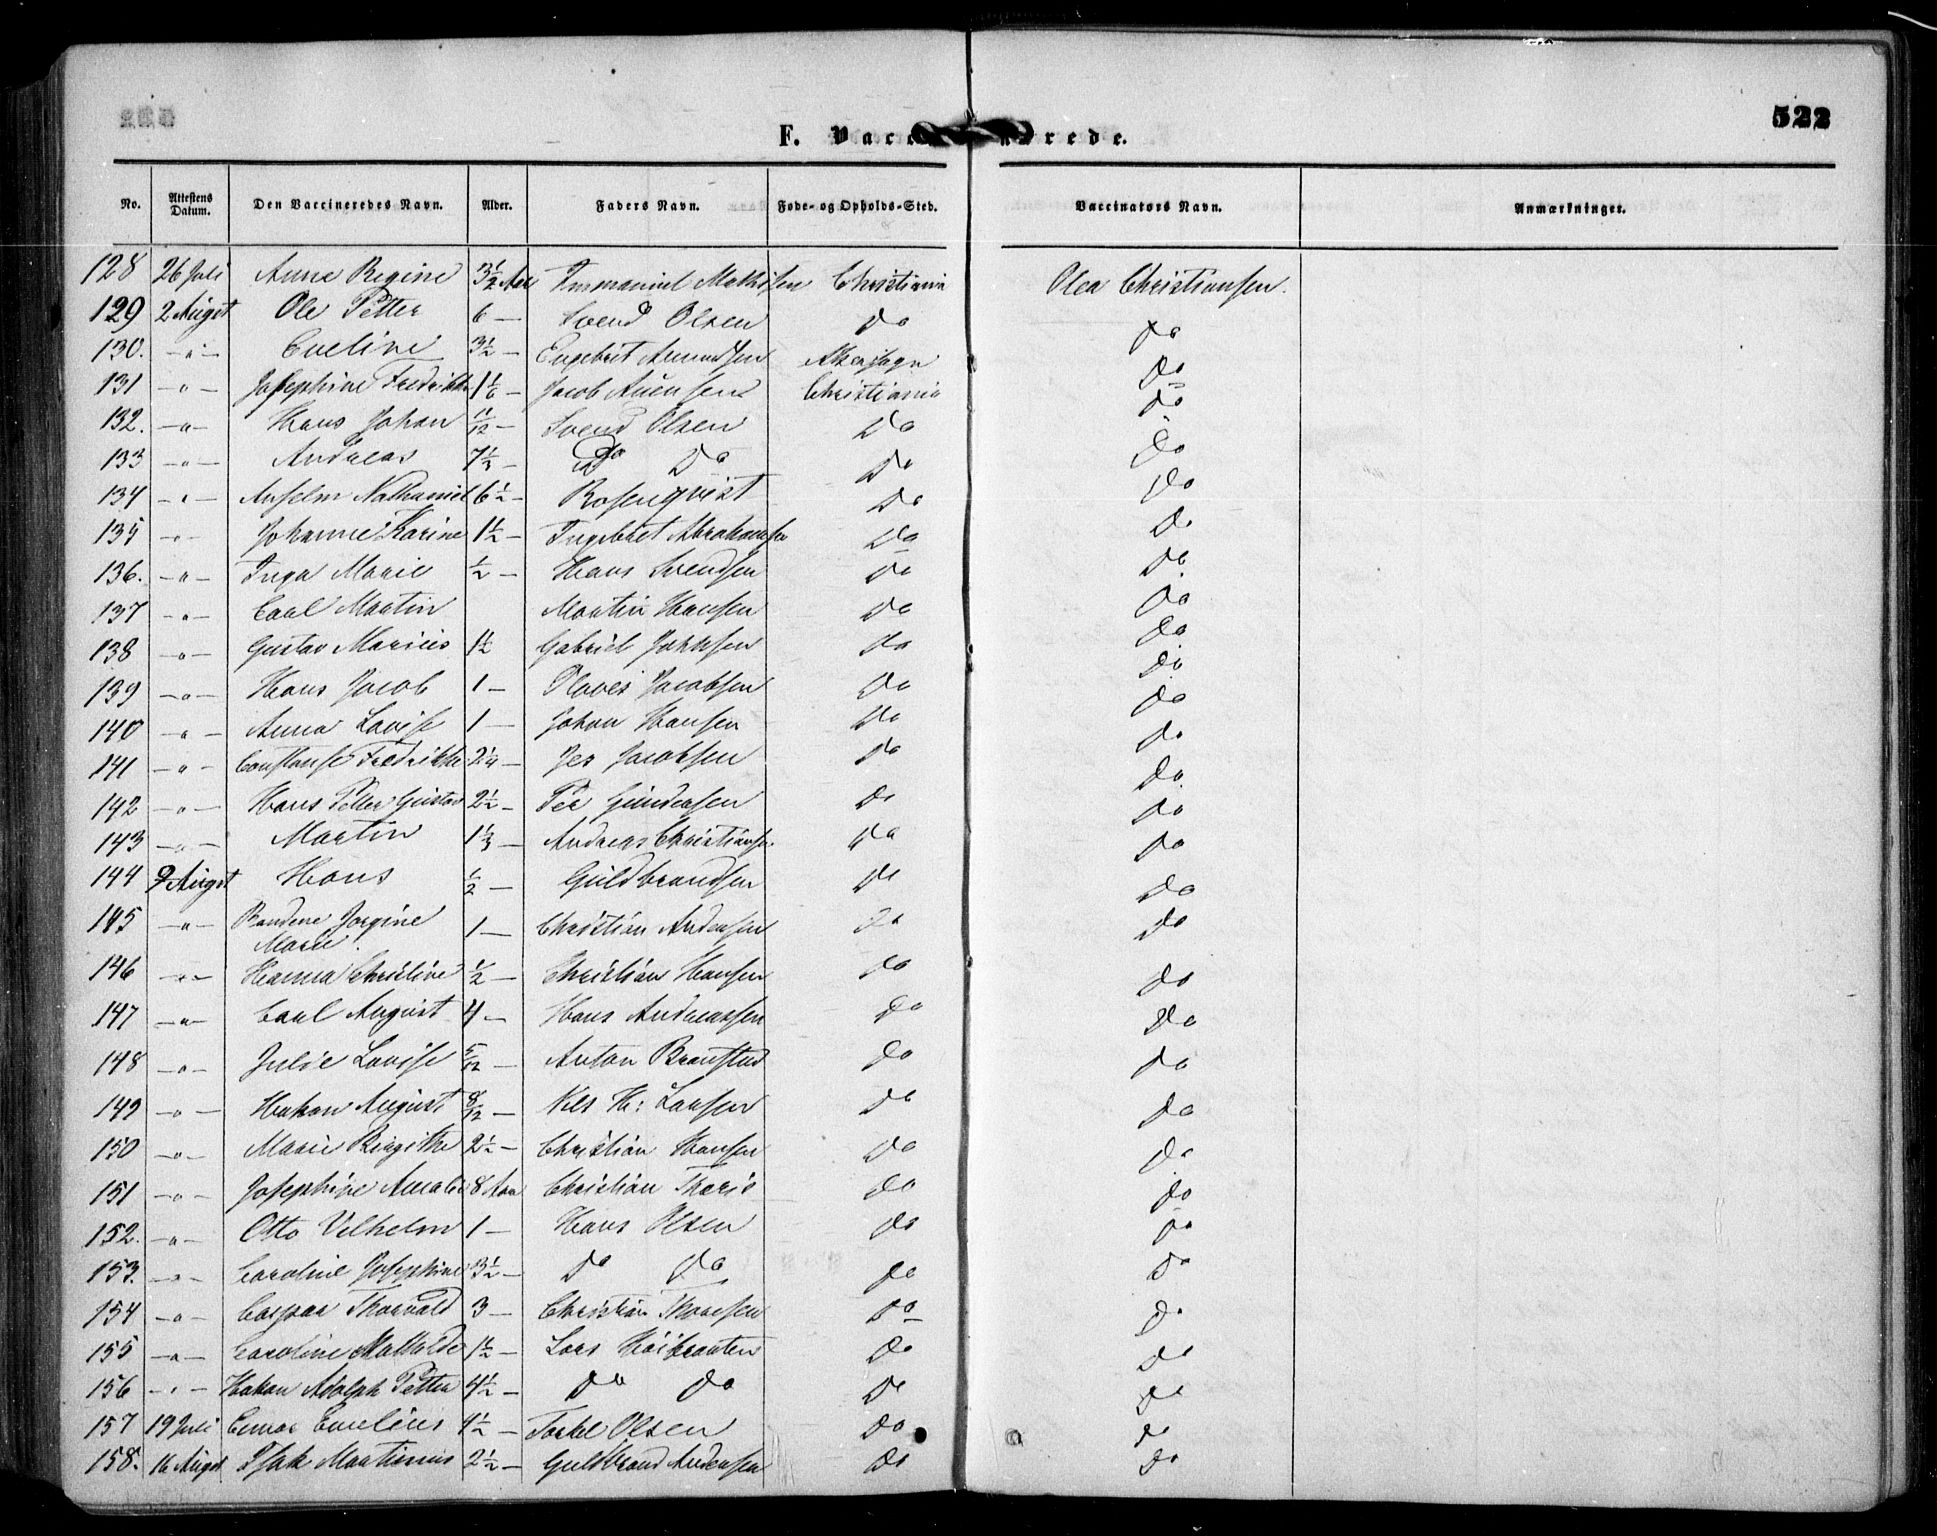 522
F. Vaccinerede.
No. Attestens Datum. Den Vaccineredes Navn. Alder. Faders Navn. Føde- og Opholds-Sted. Vaccinators Navn. Anmærkninger.
128 26 Juli Anna Regine 3½ Aar Immanuel Mathisen Christiania Olea Christiansen.
129 2 August Ole Petter 6 — Svend Olsen Do Do
130. —"— Eveline 3½ — Engebret Amundsen Akersogn Do
131 —"— Josephine Fredrikke 1 1/6 — Jacob Christiania Do
132. —"— Hans Johan 11/12 — Svend Olsen Do Do
133 —"— Andreas 7½ — Do Do Do Do
134 —"— Anselm Nathaniel 6½ — Rosenqvist Do Do
135 —"— Johanne Karine 1½ — Ingebret Abrahamsen Do Do
136. —"— Inga Marie ½ — Hans Svendsen Do Do
137 —"— Carl Martin Martin Hansen Do Do
138 —"— Gustav Marius 1½ Gabriel Johnsen Do Do
139 —"— Hans Jacob 1 — Olaves Jacobsen Do Do
140 —"— Anna Lovise 1 — Johan Hansen Do Do
141 —"— Constanse Fredrikke 2¼ — Jes Jacobsen Do Do
142 —"— Hans Petter Gustav 2½ — Per Gundersen Do Do
143 —"— Martin 1⅓ — Andreas Christiansen Do Do
144 9 August Hans ½ — Guldbrandsen Do Do
145 —"— Jorgine 1 — Christian Andersen Do Do
Marie
146 —"— Hanna Christine ½ — Christian Hansen Do Do
147 —"— Carl August 4 — Hans Andreassen Do Do
148 —"— Julie Lovise 5/12 — Anton Branstad Do Do
149 —"— Hakon August 8/12 — Nils H: Larsen Do Do
150 —"— Marie Birgithe 2½ — Christian Hansen Do Do
151 —"— Josephine Amalie 8 Aar Christian Do Do
152. —"— Otto Vilhelm 1 — Hans Olsen Do Do
153. —"— Caroline Josephine 3½ — Do Do Do Do
154 —"— Caspar Thorvald 3 — Christian Thoresen Do Do
155 —"— Caroline Mathilde 1½ — Lars Høibraaten Do Do
156 —"— Hakon Adolph Petter 4½ — Do Do Do Do
157 19 Juli Emelius 4½ — Torkel Olsen Do Do
158. 16 August Isak Martinius 2½ — Guldbrand Andersen Do Do